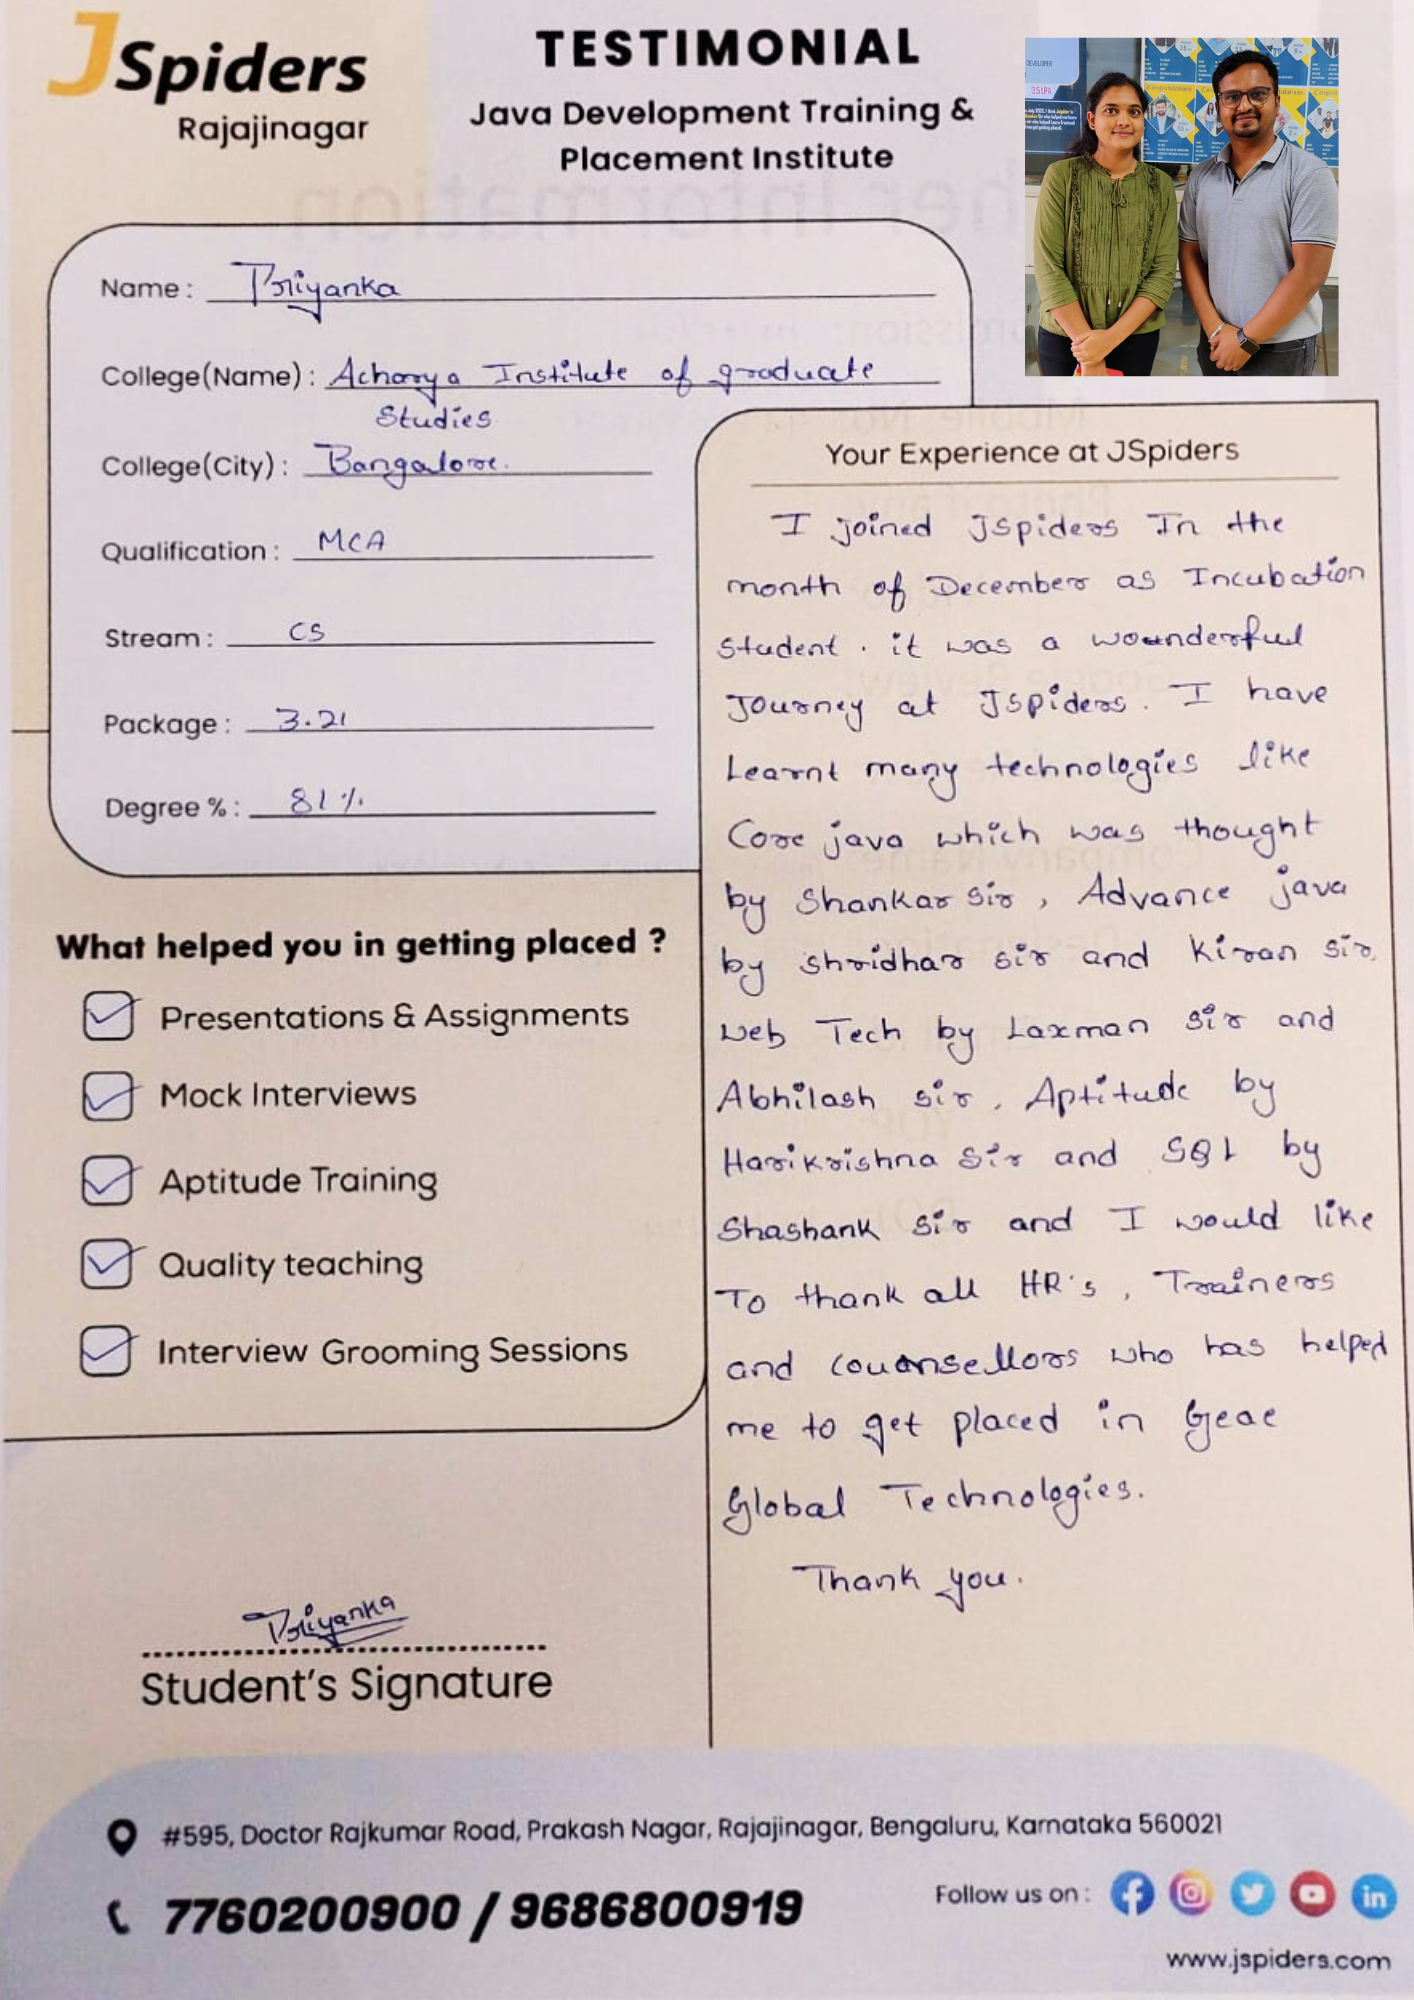 JSpiders
Rajajinagar
TESTIMONIAL
Java Development Training &
Placement Institute
DEVELOPER
3.5 LPA
Name : Priyanka
College(Name) : Acharya Institute of graduate
Studies
College(City) : Bangalore.
Qualification : MCA
Stream : CS
Package : 3.21
Degree % : 81%
What helped you in getting placed ?
Presentations & Assignments
Mock Interviews
Aptitude Training
Quality teaching
Interview Grooming Sessions
Priyanka
Student's Signature
Your Experience at JSpiders
I joined JSpiders In the
month of December as Incubation
student. it was a wounderful
Journey at JSpiders. I have
Learnt many technologies like
Core java which was thought
by Shankar sir, Advance java
by Shridhar sir and Kiran sir,
Web Tech by Laxman sir and
Abhilash sir, Aptitude by
Harikrishna Sir and SQL by
Shashank Sir and I would like
To thank all HR's, Trainers
and counsellors who has helped
me to get placed in
Global Technologies.
Thank you.
#595, Doctor Rajkumar Road, Prakash Nagar, Rajajinagar, Bengaluru, Karnataka 560021
7760200900 / 9686800919
Follow us on :
www.jspiders.com